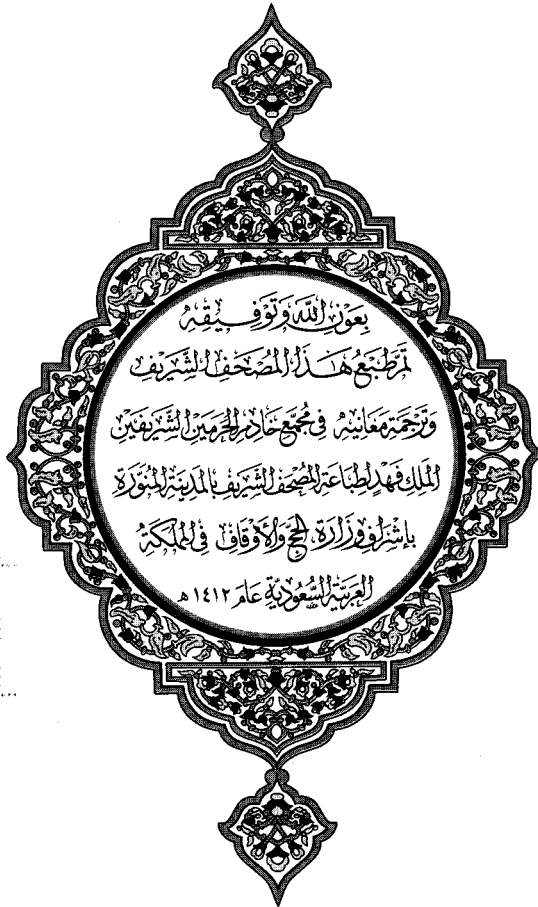 بِعَوْنِ اللَّهِ وَتَوْفِيقِهِ
تَمَّ طَبْعُ هَذَا الْمُصْحَفِ الشَّرِيفِ
وَتَرْجَمَةِ مَعَانِيهِ فِي مُجَمَّعِ خَادِمِ الْحَرَمَيْنِ الشَّرِيفَيْنِ
الْمَلِكِ فَهْدٍ لِطِبَاعَةِ الْمُصْحَفِ الشَّرِيفِ بِالْمَدِينَةِ الْمُنَوَّرَةِ
بِإِشْرَافِ وَزَارَةِ الْحَجِّ وَالْأَوْقَافِ فِي الْمَمْلَكَةِ
الْعَرَبِيَّةِ السُّعُودِيَّةِ عَامَ ١٤١٢هـ